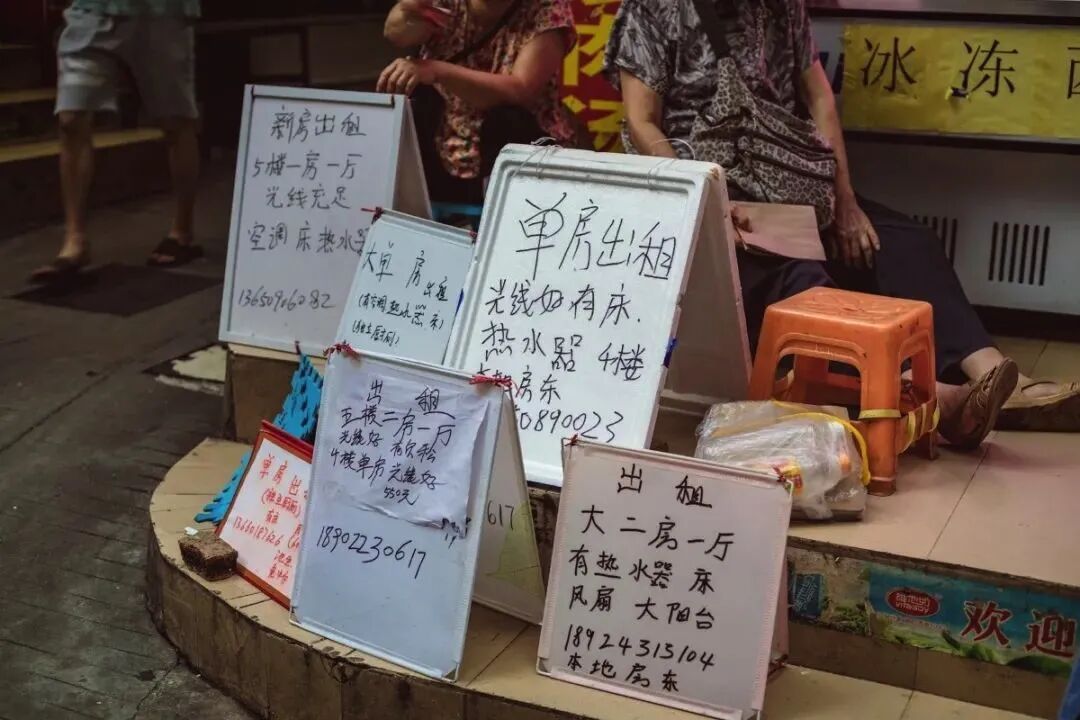 新房出租
5楼一房一厅
光线充足
空调床热水器
13650906082
大单房出租
单房出租
光线好有床.
热水器 4楼
房东
0890023
出租
五楼二房一厅
光线好
4楼单房光线好
550元
18902230617
617
单房出租
有床
出租
大二房一厅
有热水器床
风扇 大阳台
18924315104
本地房东
冰冻西
欢迎